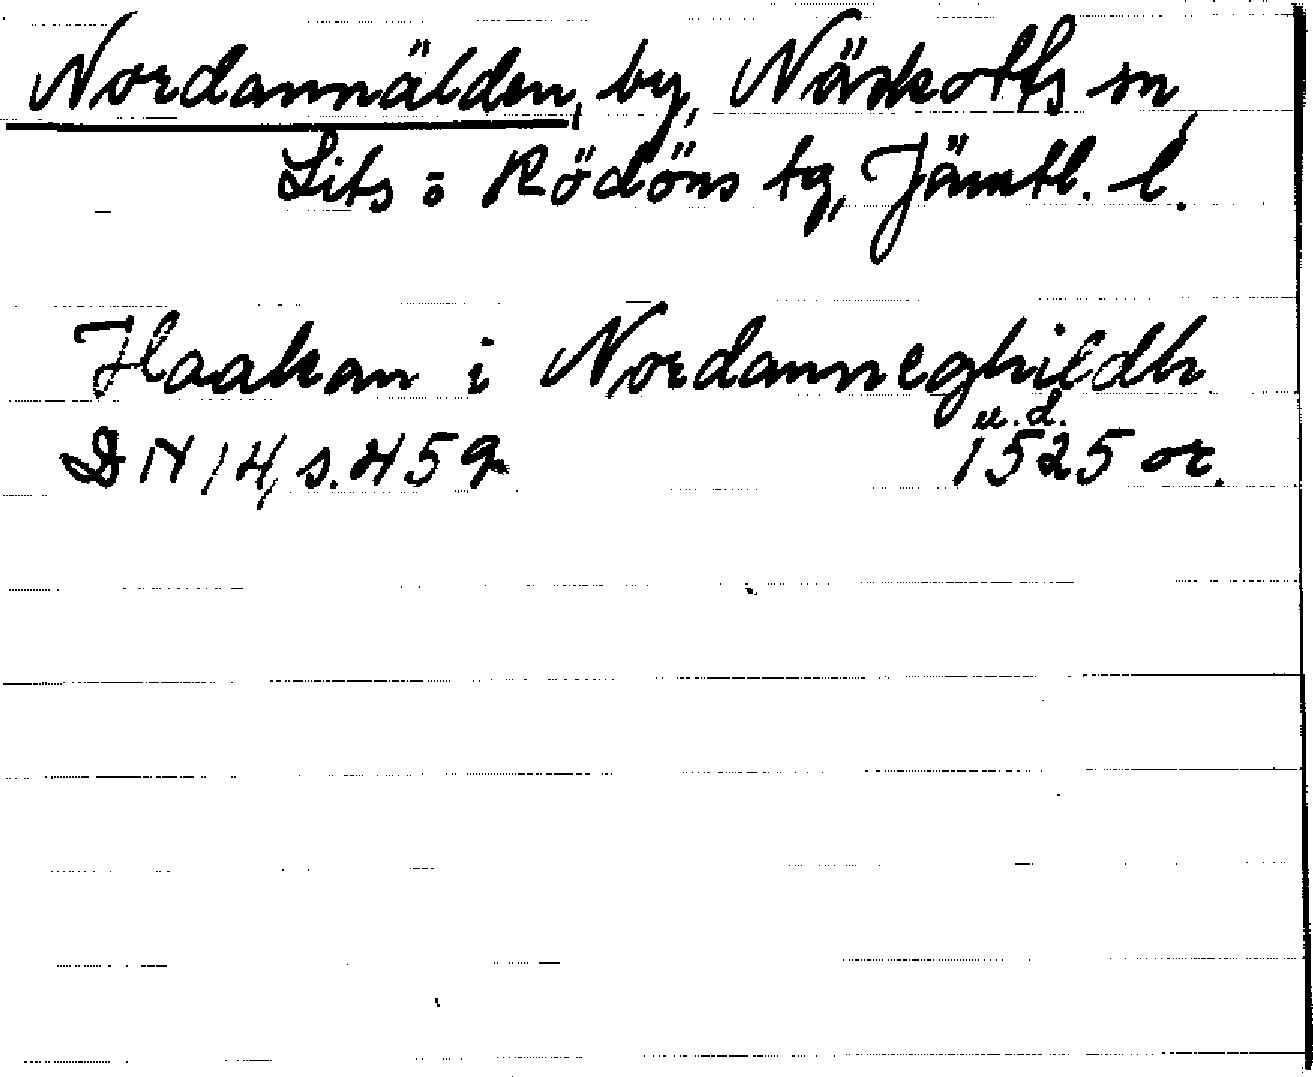 Nordannälden, by, Näskotts sn,
Lits o Rödöns tg, Jämtl. l.
Haakan i Nordanneghildh
u.d.
DN 14, s. 459 1525 or.